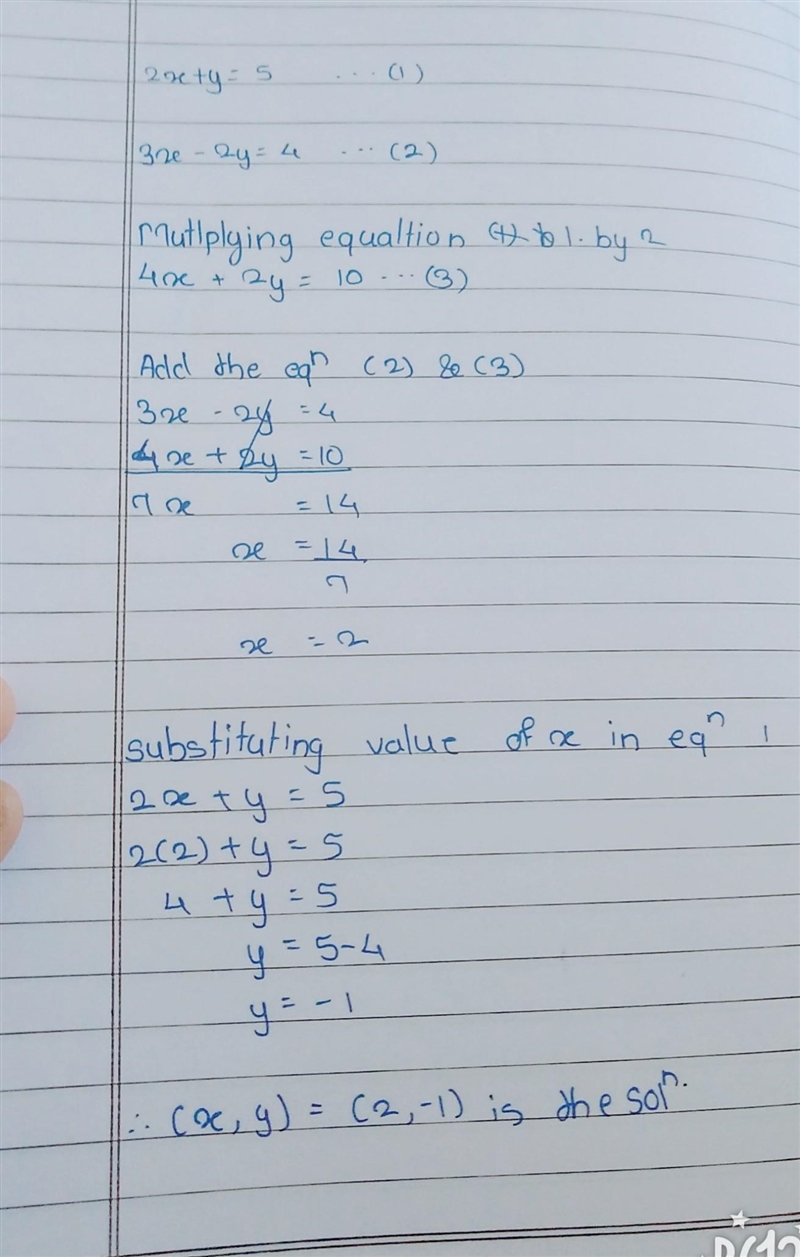 2x+y= 5 ... (1)
3x - 2y= 4 ... (2)
Mutlplying equaltion 1. by 2
4x + 2y = 10 ... (3)
Add the eqⁿ (2) & (3)
3x - 2y = 4
4x + 2y = 10
7x = 14
x = 14
7
x = 2
substituting value of x in eqⁿ 1
2x + y = 5
2(2) + y = 5
4 + y = 5
y = 5-4
y = -1
∴ (x, y) = (2,-1) is the solⁿ.